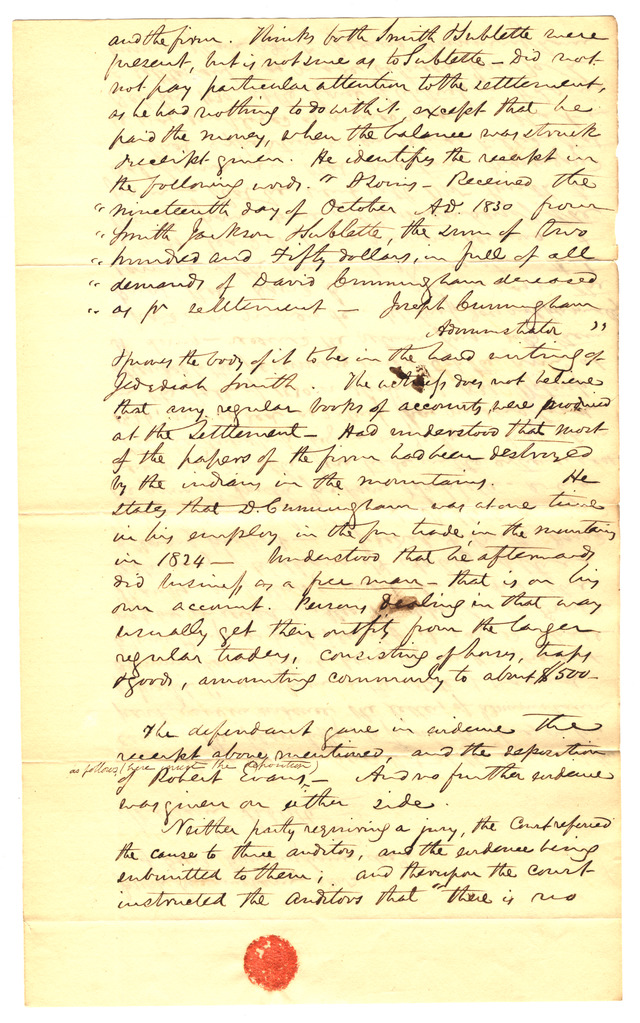 and the firm. Thinks both Smith & Sublette were
present, but is not sure as to Sublette – Did not
not pay particular attention to the settlement,
as he had nothing to do with it except that he
paid the money, when the balance was struck
& receipt given. He identifies the receipt in
the following words. " St Louis – Received the
" nineteenth day of October A.D. 1830 from
" Smith Jackson & Sublette, the sum of two
" hundred and fifty dollars, in full of all
" demands of David Cunningham deceased
" as pr settlement – Joseph Cunningham
Administrator "
& proves the body of it to be in the hand writing of
Jedediah Smith. The witness does not believe
that any regular books of accounts, were produced
at the settlement – Had understood that most
of the papers of the firm had been destroyed
by the indians in the mountains. He
states that D. Cunningham was at one time
in his employ in the fur trade, in the mountains
in 1824 – Understood that he afterwards
did business as a free man – that is on his
own account. Persons dealing in that way
usually get their outfits from the larger
regular traders, consisting of horses, traps
& goods, amounting commonly to about $500–
The defendant gave in evidence the
receipt above mentioned, and the deposition
as follows (here insert the deposition)
of Robert Evans – And no further evidence
was given on either side.
Neither party requiring a jury, the Court referred
the cause to three auditors, and the evidence being
submitted to them; and thereupon the court
instructed the auditors that "there is no